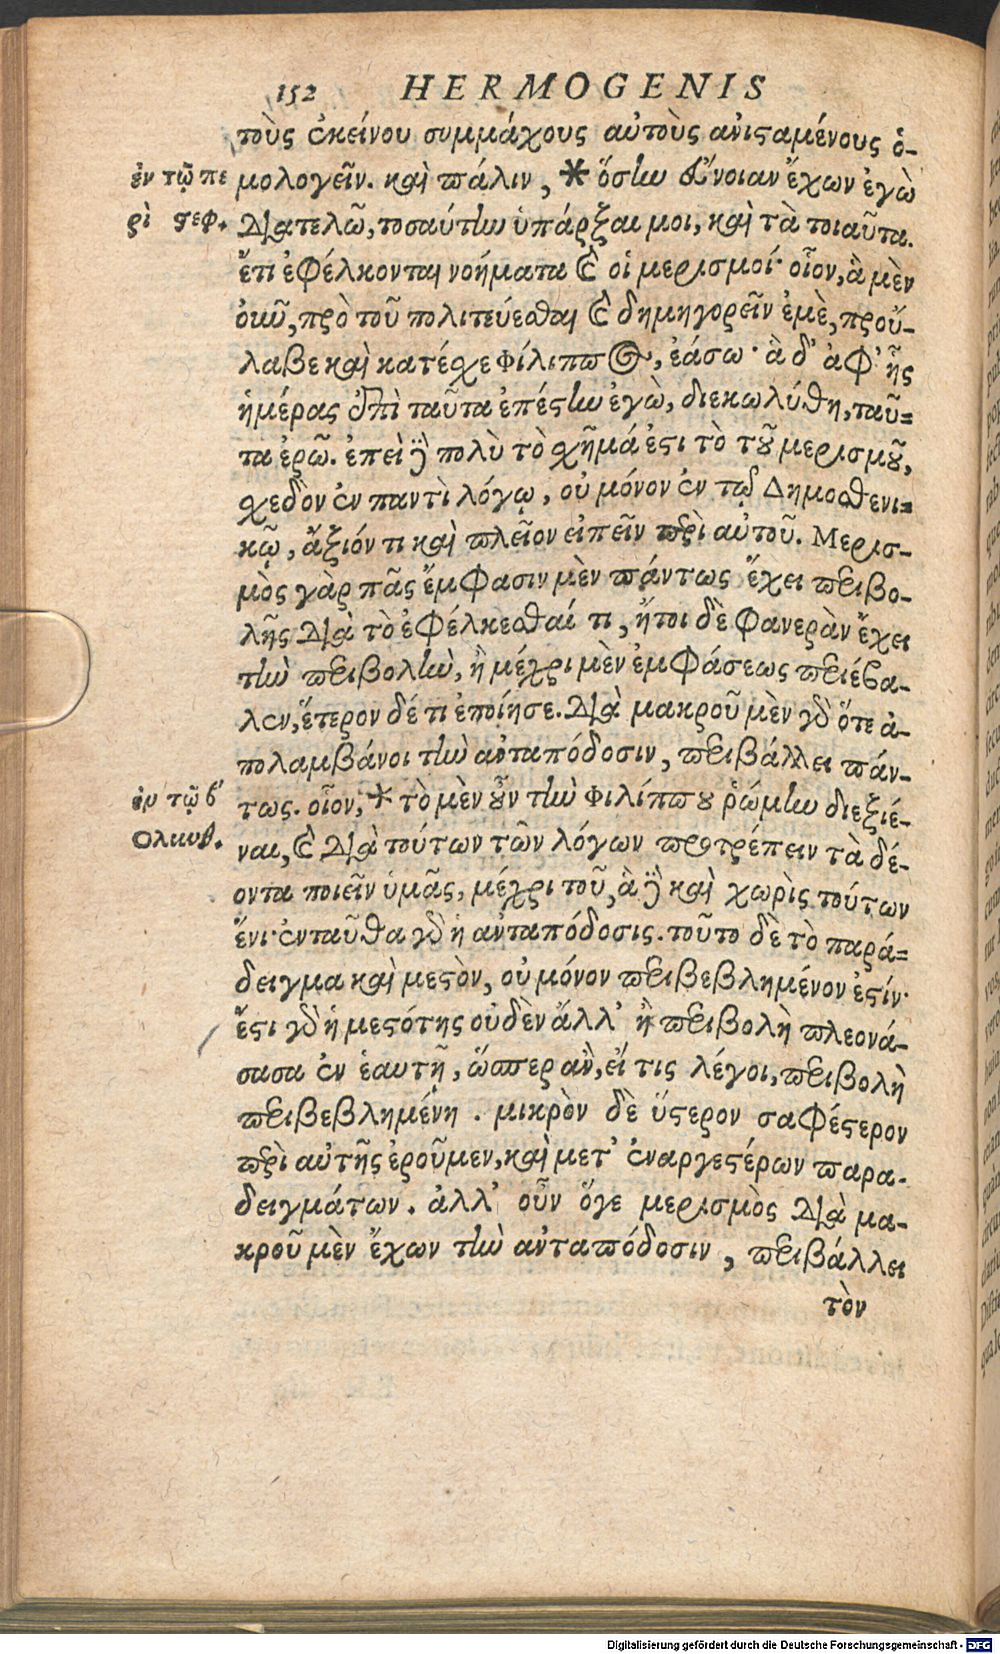 152 HERMOGENIS
τοὺς ἐκείνου συμμάχους αὐτοὺς ἀνισταμένους ὁ-
ἐν τῷ πε
μολογεῖν. καὶ πάλιν, * ὅσην εὔνοιαν ἔχων ἐγὼ
ρὶ στεφ.
διατελῶ, τοσαύτην ὑπάρξαι μοι, καὶ τὰ τοιαῦτα.
ἔτι ἐφέλκονται νοήματα καὶ οἱ μερισμοί· οἷον, ἃ μὲν
οὖν, πρὸ τοῦ πολιτεύεσθαι καὶ δημηγορεῖν ἐμὲ, προὔ-
λαβε καὶ κατέσχε φίλιππος, ἐάσω· ἃ δ' ἀφ' ἧς
ἡμέρας ἐπὶ ταῦτα ἐπέστην ἐγὼ, διεκωλύθη, ταῦ-
τα ἐρῶ. ἐπεὶ δὲ πολὺ τὸ σχῆμά ἐστι τὸ τοῦ μερισμοῦ,
σχεδὸν ἐν παντὶ λόγῳ, οὐ μόνον ἐν τῷ Δημοσθενι-
κῷ, ἄξιόν τι καὶ πλεῖον εἰπεῖν περὶ αὐτοῦ. Μερισ-
μὸς γὰρ πᾶς ἔμφασιν μὲν πάντως ἔχει περιβο-
λῆς διὰ τὸ ἐφέλκεσθαί τι, ἤτοι δὲ φανερὰν ἔχει
τὴν περιβολὴν, ἢ μέχρι μὲν ἐμφάσεως περιέβα-
λεν, ἕτερον δέ τι ἐποίησε. διὰ μακροῦ μὲν γὰρ ὅτε ἀ-
πολαμβάνοι τὴν ἀνταπόδοσιν, περιβάλλει πάν-
ἐν τῷ β'
τως. οἷον, * τὸ μὲν οὖν τὴν φιλίππου ῥώμην διεξιέ-
Ολυνθ.
ναι, καὶ διὰ τούτων τῶν λόγων προτρέπειν τὰ δέ-
οντα ποιεῖν ὑμᾶς, μέχρι τοῦ, ἃ δὲ καὶ χωρὶς τούτων
ἔνι· ἐνταῦθα γὰρ ἡ ἀνταπόδοσις. τοῦτο δὲ τὸ παρά-
δειγμα καὶ μεστὸν, οὐ μόνον περιβεβλημένον ἐστίν·
ἔστι γὰρ ἡ μεστότης οὐδὲν ἄλλ' ἢ περιβολὴ πλεονά-
σασα ἐν ἑαυτῇ, ὥσπερ ἂν, εἴ τις λέγοι, περιβολὴ
περιβεβλημένη. μικρὸν δὲ ὕστερον σαφέστερον
περὶ αὐτῆς ἐροῦμεν, καὶ μετ' ἐναργεστέρων παρα-
δειγμάτων. ἀλλ' οὖν ὅγε μερισμὸς διὰ μα-
κροῦ μὲν ἔχων τὴν ἀνταπόδοσιν, περιβάλλει
τὸν
Digitalisierung gefördert durch die Deutsche Forschungsgemeinschaft - DFG